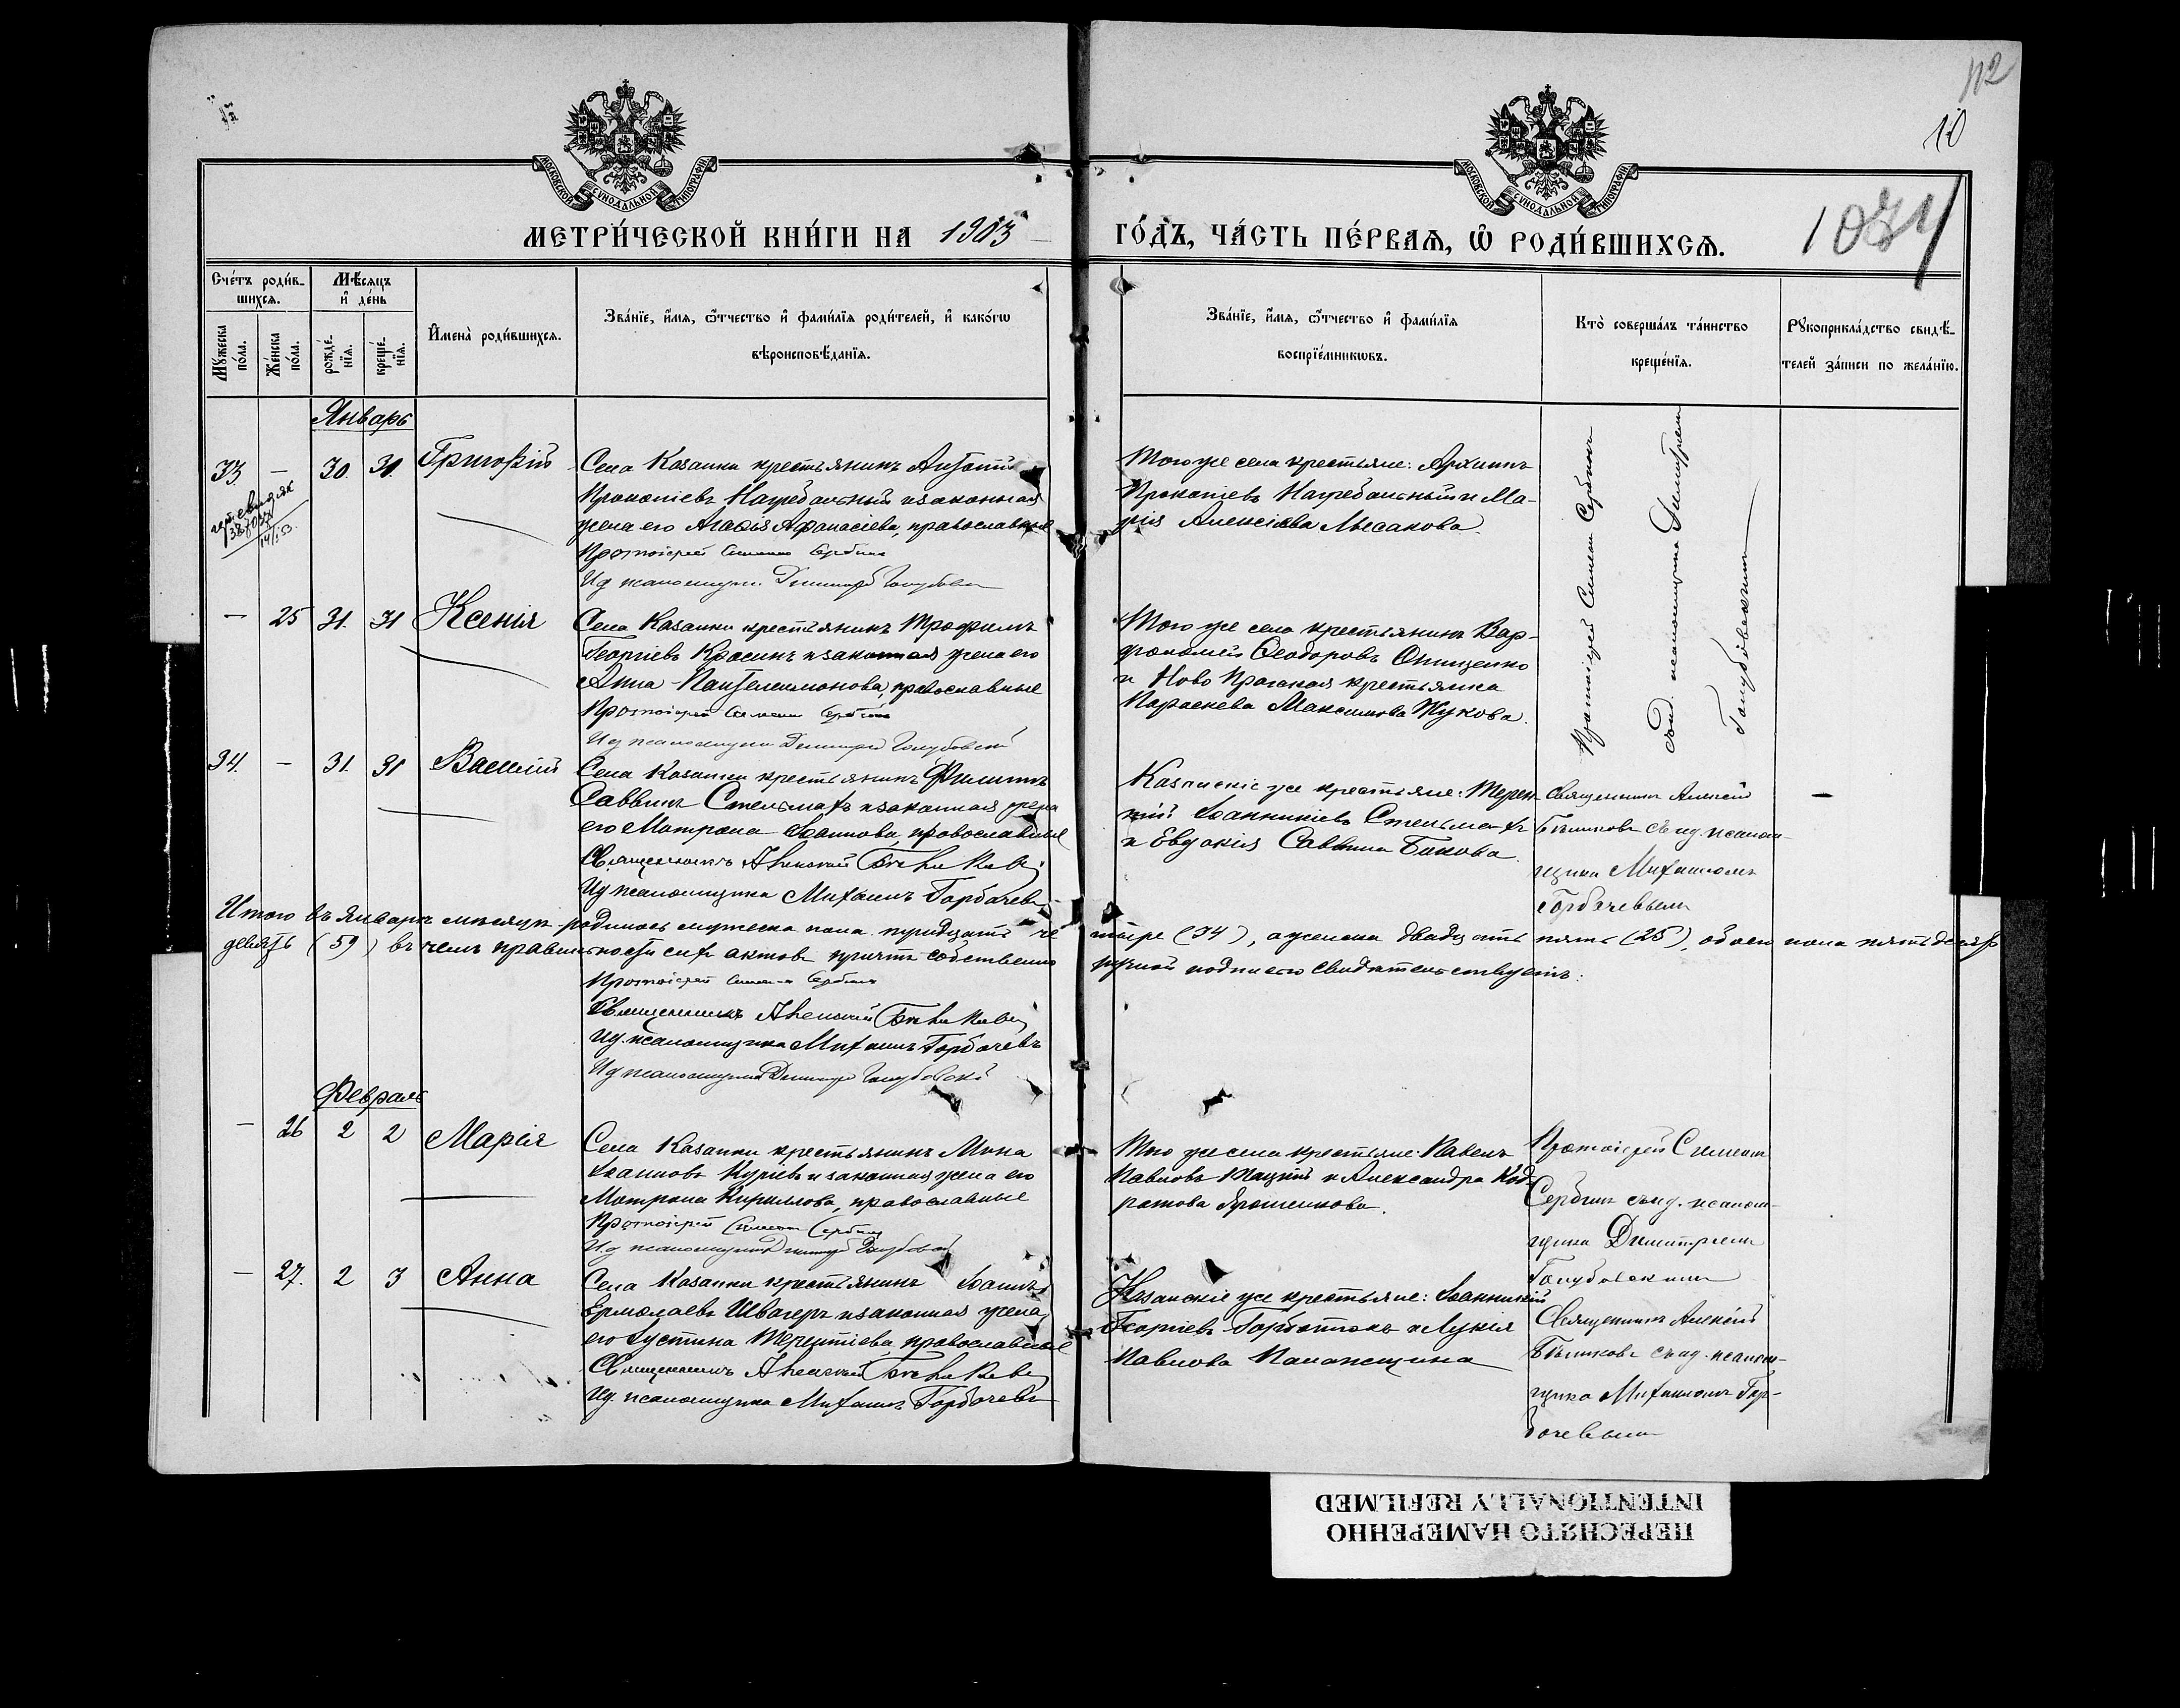 112
10
1074
МОСКОВСКОЙ СѴНОДАЛЬНОЙ ТИПОГРАФІИ
МОСКОВСКОЙ СѴНОДАЛЬНОЙ ТИПОГРАФІИ
МЕТРИ́ЧЕСКОЙ КНИ́ГИ НА 1903 ГО́ДЪ, ЧА́СТЬ ПЕ́РВАѦ, Ѽ РОДИ́ВШИХСѦ.
Сче́тъ роди́в-
шихсѧ.
Мѣ́сяцъ
и҆ де́нь
Мꙋ́жеска
по́ла.
Же́нска
по́ла.
рожде́-
нїѧ.
креще́-
нїѧ.
И҆мена̀ роди́вшихсѧ.
Зва́нїе, и҆́мѧ, ѻ҆́тчество и҆ фами́лїѧ роди́телей, и҆ како́гѡ
вѣроисповѣ́данїѧ.
Зва́нїе, и҆́мѧ, ѻ҆́тчество и҆ фами́лїѧ
воспрїе́мникѡвъ.
Кто̀ соверша́лъ та́инство
креще́нїѧ.
Рꙋкоприкла́дство свидѣ́-
телей за́писи по жела́нїю.
Январь
33. — 30. 31. Григорій
Села Казанки крестьянинъ Антоній
Прокопіевъ Нагребальный и законная
жена его Агафія Афанасіева, православные
Протоіерей Симеонъ Сербинъ
Ид псаломщика Димитрій Голубовскій
Того же села крестьяне: Архипъ
Прокопіевъ Нагребальный и Ма-
рія Алексіева Лысакова.
Протоіерей Симеонъ Сербинъ
съ ид. псаломщика Димитріемъ
Голубовскимъ
— 25 31. 31 Ксенія
Села Казанки крестьянинъ Трофимъ
Георгіевъ Красинъ и законная жена его
Анна Пантелеимонова, православные
Протоіерей Симеонъ Сербинъ
Ид псаломщика Димитрій Голубовскій
Того же села крестьянинъ Вар-
фоломей Ѳеодоровъ Онищенко
и Ново Пражская крестьянка
Параскева Максимова Жукова.
34. — 31. 31 Василій
Села Казанки крестьянинъ Филиппъ
Саввинъ Стельмахъ и законная жена
его Матрона Іоаннова, православные
Священникъ Алексій Бѣликовъ
Ид псаломщика Михаилъ Горбачевъ
Казанскіе же крестьяне: Терен-
тій Іоанникіевъ Стельмахъ
и Евдокія Саввина Бакова.
Священникъ Алексій
Бѣликовъ съ ид. псалом-
щика Михаиломъ
Горбачевымъ
—
Итого въ Январѣ мѣсяцѣ родилось мужеска пола тридцать четыре (34), а женска двадцать пять (25), обоего пола пятьдесятъ
девять (59) въ чемъ правильности сихъ актовъ причтъ собственно ручной подписью свидѣтельствуетъ:
Протоіерей Симеонъ Сербинъ
Священникъ Алексій Бѣликовъ
Ид. псаломщика Михаилъ Горбачевъ
Ид псаломщика Димитрій Голубовскій
Февраль
— 26 2 2 Марія
Села Казанки крестьянинъ Мина
Іоанновъ Курѣевъ и законная жена его
Матрона Кириллова, православные
Протоіерей Симеонъ Сербинъ
Ид псаломщика Димитрій Голубовскій
Того же села крестьяне: Павелъ
Павловъ Тацкій и Александра Код-
ратова Ярошенкова.
Протоіерей Симеонъ
Сербинъ съ ид. псалом-
щика Димитріемъ
Голубовскимъ
— 27. 2 3 Анна
Села Казанки крестьянинъ Іоаннъ
Ермолаевъ Швагеръ и законная жена
его Іустина Терентіева, православные
Священникъ Алексій Бѣликовъ
Ид. псаломщика Михаилъ Горбачевъ
Казанскіе же крестьяне: Іоанникій
Георгіевъ Горботюкъ и Лукія
Павлова Паланещина
Священникъ Алексій
Бѣликовъ съ ид. псалом-
щика Михаиломъ Гор-
бачевымъ
ПЕРЕСНЯТО НАМЕРЕННО
INTENTIONALLY REFILMED